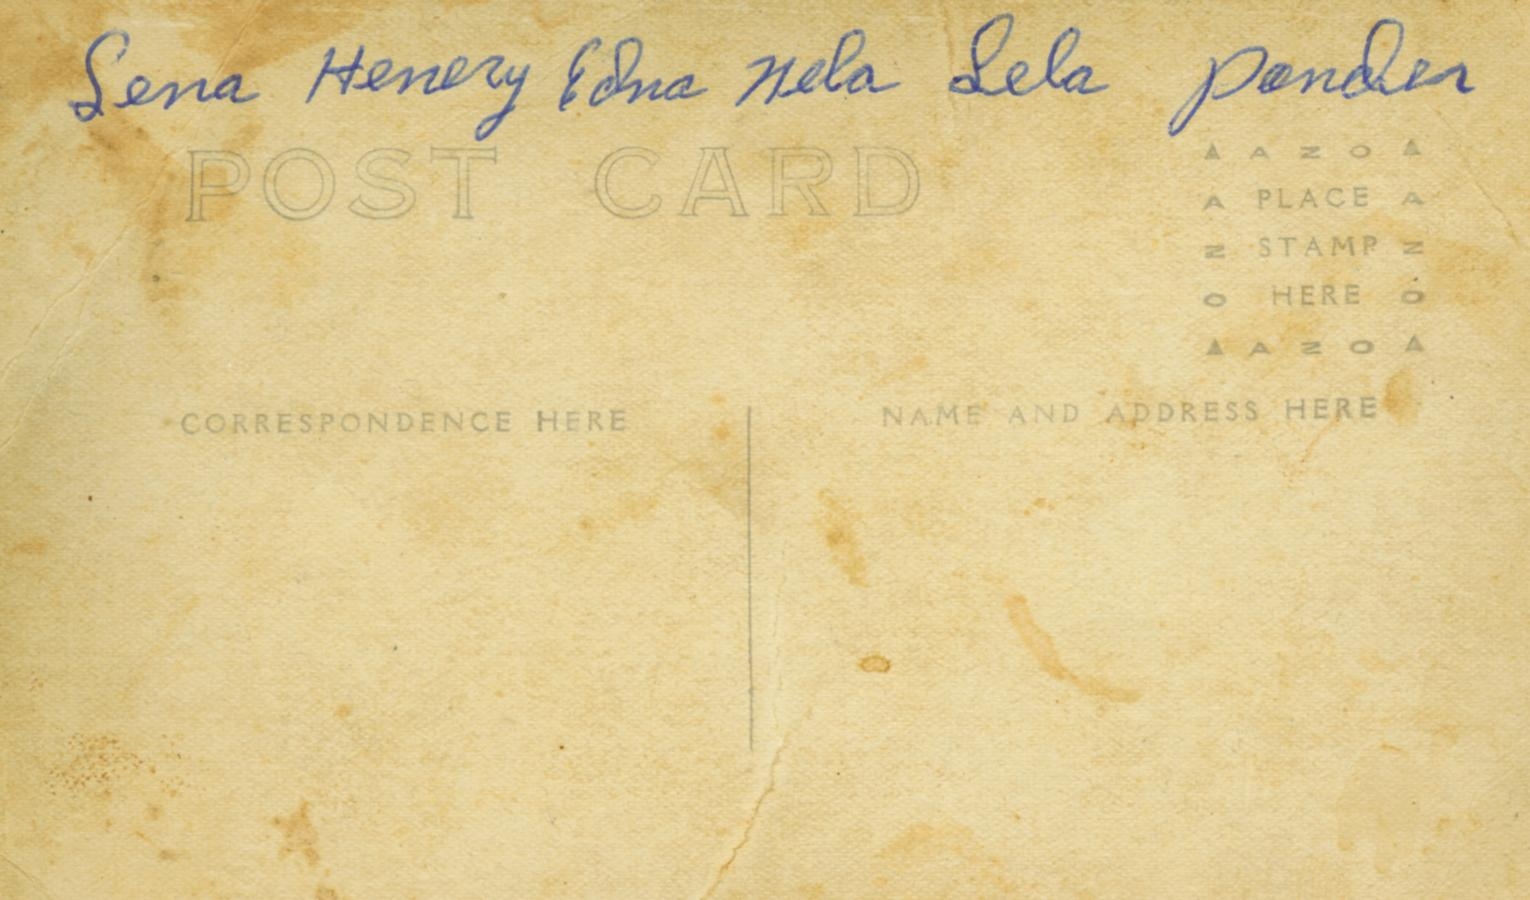 Lena Henery Edna Nela Lela Ponder
POST CARD
▲ A Z O ▲
A PLACE A
Z STAMP Z
O HERE O
▲ A Z O ▲
CORRESPONDENCE HERE
NAME AND ADDRESS HERE